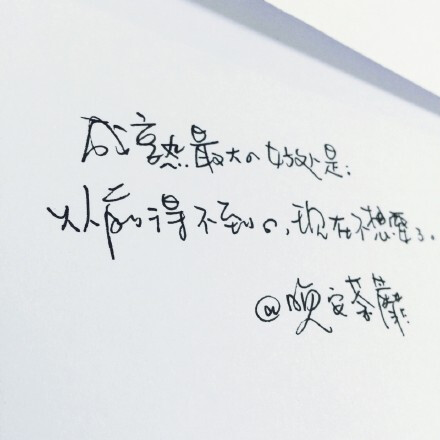 成熟最大の好处是:
从前得不到の,现在不想要了.
@晚安荼蘼